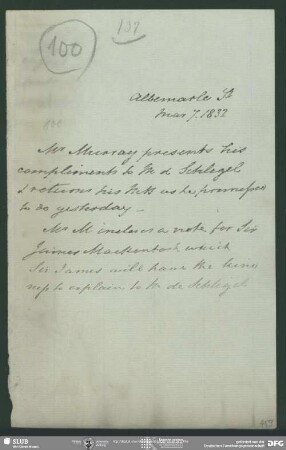 137
100
Albemarle St
Mar 7. 1832
Mr Murray presents his
compliments to Mr de Schlegel
& returns his MSS as he promised
to do yesterday —
Mr M incloses a note for Sir
James Mackintosh which
Sir James will have the kind
ness to explain to Mr de Schlegel
SLUB
DFG